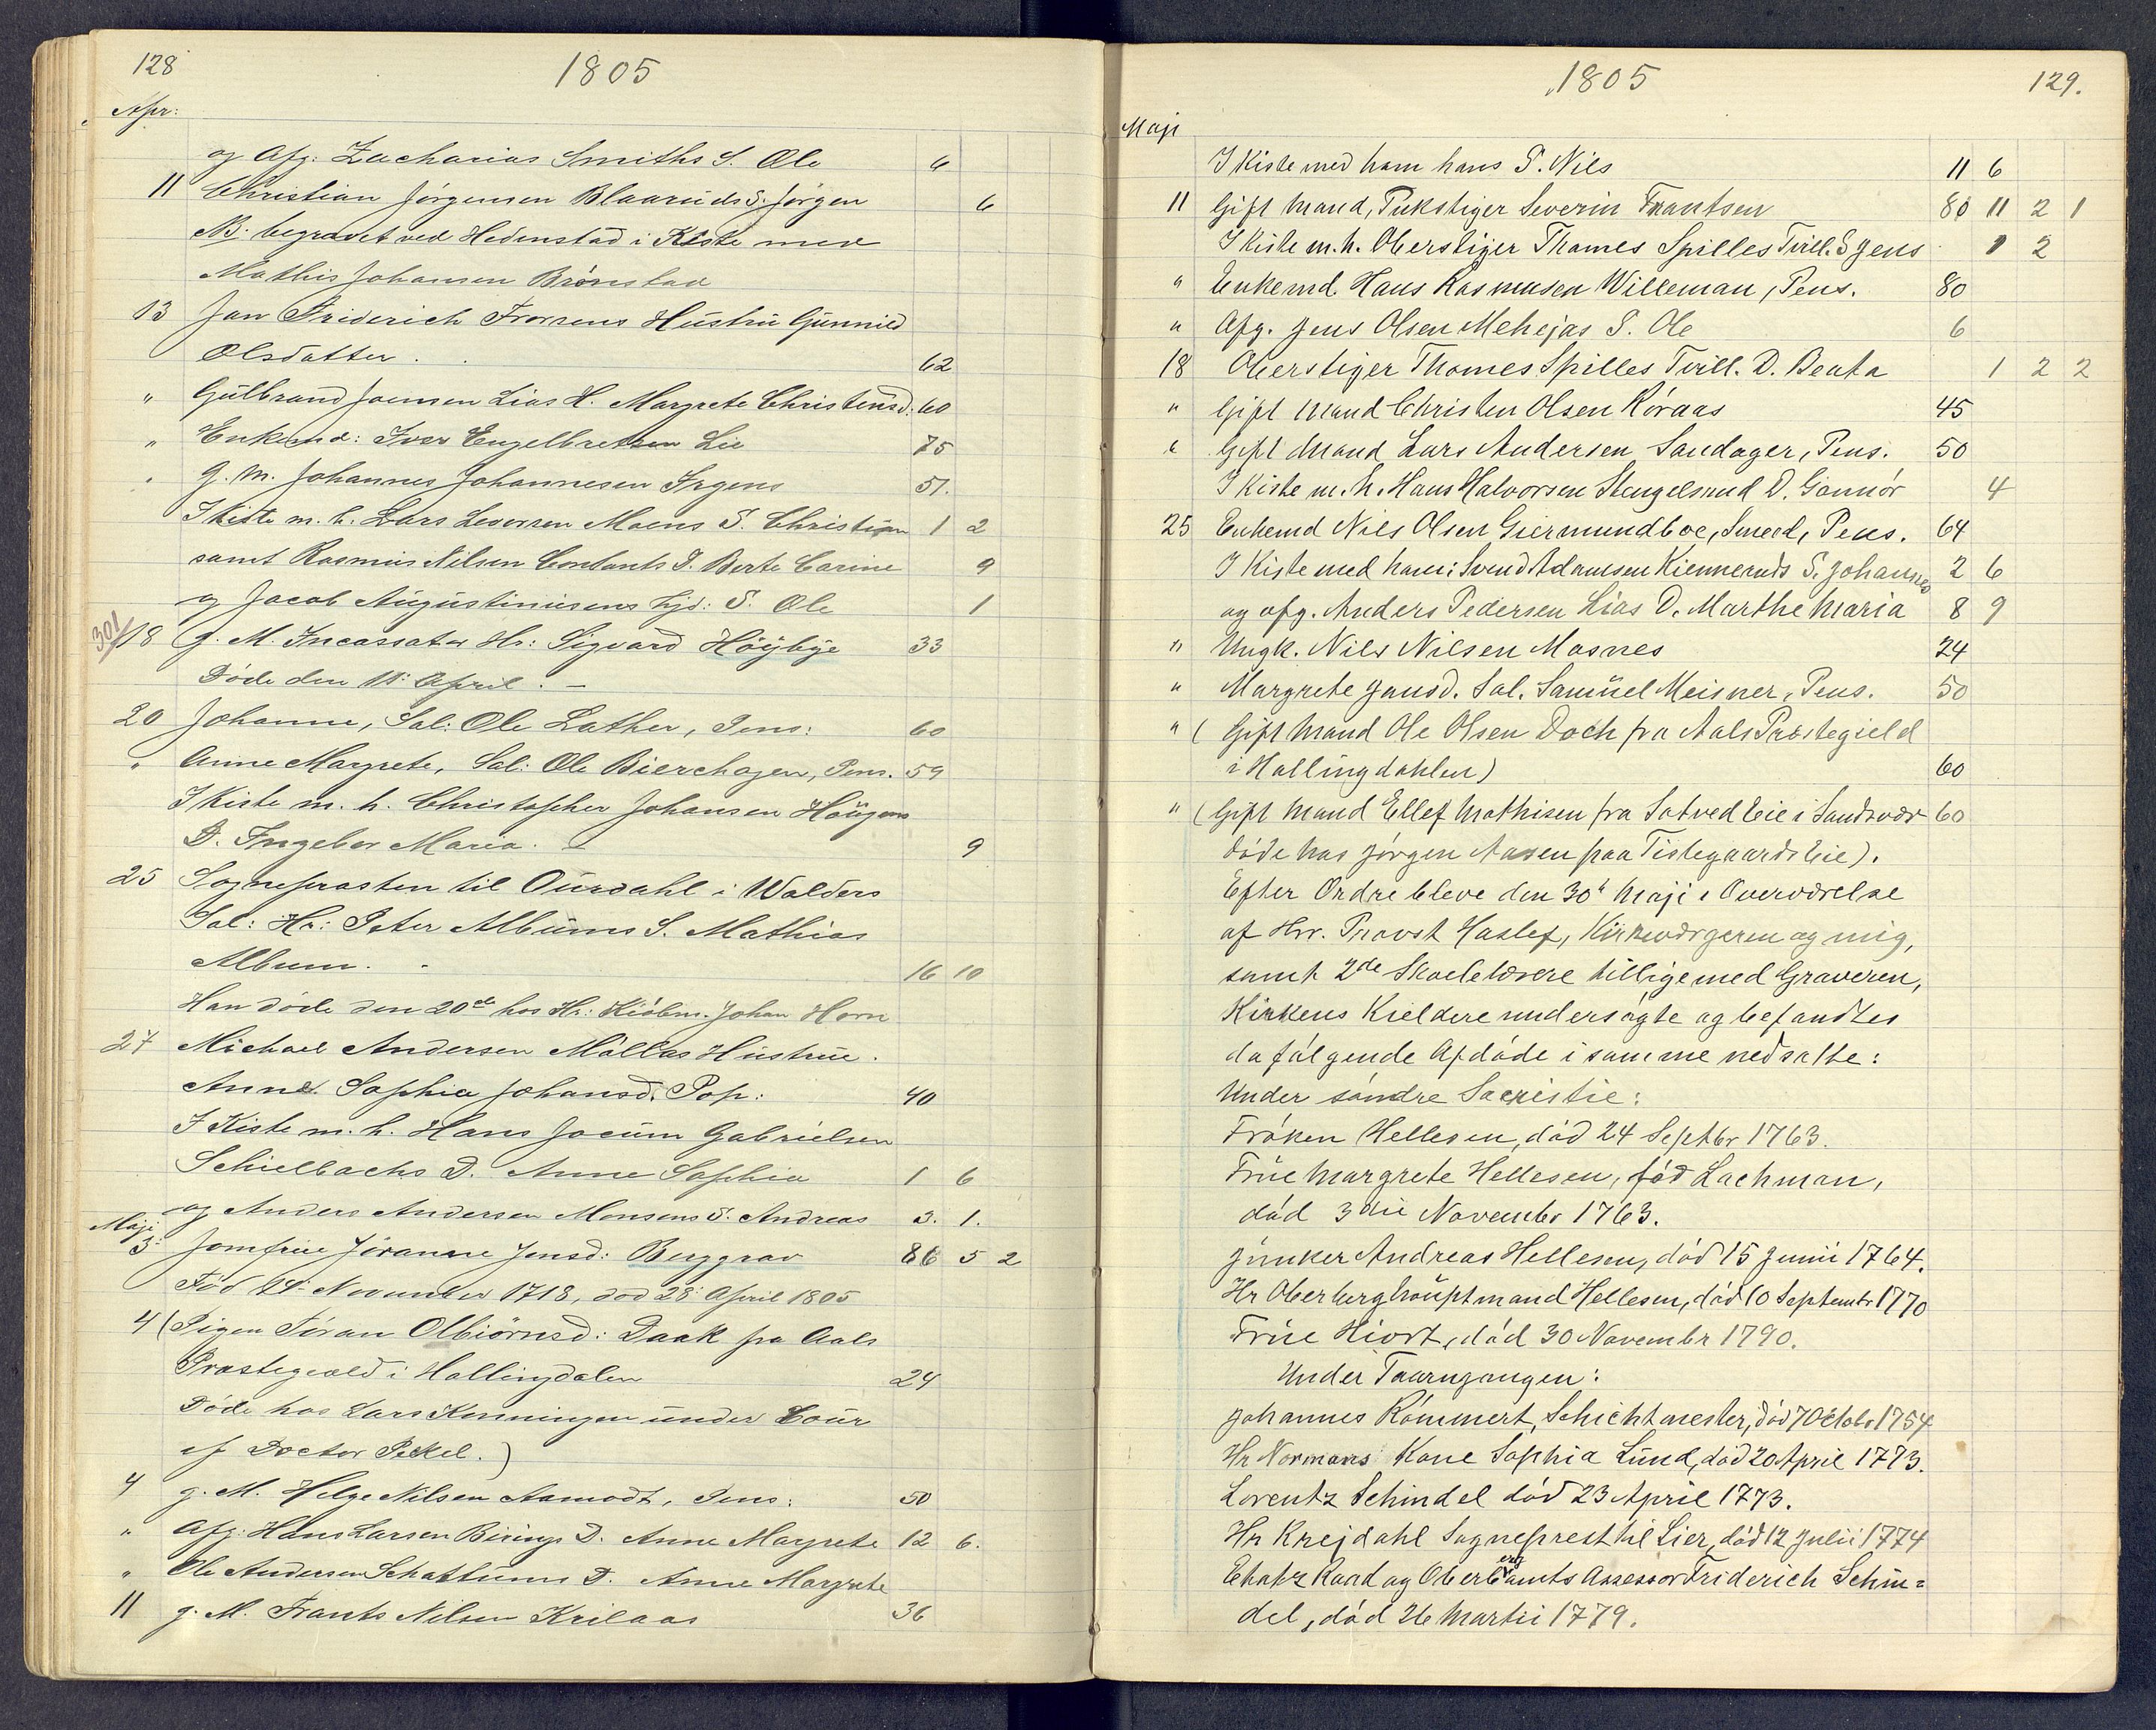 128
1805
Apr:
og Afg: Zacharias Smiths S. Ole 6
11 Christian Jörgensen Blaaruds S. Jörgen 6
NB. begravet ved Hedenstad i Kiste med
Mathis Johansen Brönstad
13 Jan Friderich Hustru Gunnild
Olsdatter . . 62
" Gülbrand Joensen Lias H. Margrete Christensd: 60
" Enkemd: Iver Engelbretsen Lie 75
" g. M. Johannes Johannesen Irgens 51.
I Kiste m. h. Lars Moens S. Christian 1 2
samt Rasmus Nilsen Constants D. Berte Carine 9
og Jacob Augustinusens S. Ole 1
301/18 g. M. Incassator Hr: Sigvard Höybye 33
Döde den 11. April . —
20 Johanne, Sal: Ole Lather, Pens: 60
" Anne Margrete, Sal: Ole Bierchagen, Pens. 59
I Kiste m. h. Christopher Johansen Höügens
D. Ingebor Maria. — 9
25 Sognepræsten til Ourdahl i Walders
Sal: Hr: Peter Albums S. Mathias
Album. . 16 10
Han döde den 20de hos Hr: Kiöbm. Johan Horn
27 Michael Andersen Möllas Hustrue .
Anne Sophia Johansd. Pop: 40
I Kiste m. h. Hans Jocüm Gabrielsen
Schielbachs D. Anne Sophia 1 6
og Anders Andersen Monsens S. Andreas 3. 1.
Maji
3: Jomfrue Jöranne Jensd: Berggrav 86 5 2
Fød November 1718, død 28: April 1805
4 (Pigen Jöran Olbiörnsd: Daak fra Aals
Præstegield i Hallingdalen 24
Döde hos Lars Konningen under Cour
af Doctor Pekel.)
4 g. M. Helge Nilsen Aamodt, Pens: 50
" Afg: Hans Larsen D. Anne Margrete 12 6.
" Ole Andersen Schattums D. Anne Margrete
11 g. M. Frants Nilsen Krilaas 36
1805
129.
Maji
I Kiste med ham hans S. Nils 11 6
11 Gift Mand, Pukstiger Severin Frantsen 80 11 2 1
I Kiste m. h. Oberstiger Thomes Spilles Tvill. S Jens 1 2
" Enkemd. Hans Rasmusen Willeman, Pens. 80
" Afg. Jens Olsen Mehejas S. Ole 6
18 Oberstiger Thomes Spilles Tvill. D. Beata 1 2 2
" Gift Mand Christen Olsen Röraas 45
" Gift Mand Lars Andersen Sandager, Pens. 50
I Kiste m. h. Hans Halvorsen Stengelsrud D. Gonnör 4
25 Enkemd Nils Olsen Giermundboe, Smed, Pens. 64
I Kiste med ham: Svend Adamsen Kiennerüds S. Johannes 2 6
og afg. Anders Pedersen Lias D. Marthe Maria 8 9
" Ungk. Nils Nilsen Masnes 24
" Margrete Jansd. Sal. Samüel Meisner, Pens. 50
" (Gift Mand Ole Olsen Doch fra Aals Præstegield
i Hallingdahlen) 60
" (Gift Mand Ellef Mathisen fra Satved Eie i Sandsvær 60
döde hos Jörgen Aasen paa Tistegaards Eie).
Efter Ordre bleve den 30te Maji i Overværelse
af Hrr. Provst Haslef, Kirkeværgeren og mig,
samt 2de Skoelelærere tillige med Graveren,
Kirkens Kieldere undersögte og befandtes
da fölgende Afdöde i samme nedsatte:
Under söndre Sacristie:
Fröken Hellesen, död 24 Septbr 1763.
Früe Margrete Hellesen, föd Lachman,
död 3die Novembr 1763.
Jünker Andreas Hellesen, död 15 Junii 1764.
Hr Oberberghauptmand Hellesen, död 10 Septembr 1770
Früe Hiort, död 30 Novembr 1790.
Under Taarngangen:
Johannes Römmert, Schichtmester, död 7 Octobr 1754
Hr Normans Kone Sophia Lünd, död 20 April 1773.
Lorentz Schindel död 23 April 1773.
Hr Krejdahl Sogneprest til Lier, död 12 Julii 1774
Etatz Raad og Oberbergamts Assessor Friderich Schin=
del, död 26 Martii 1779.